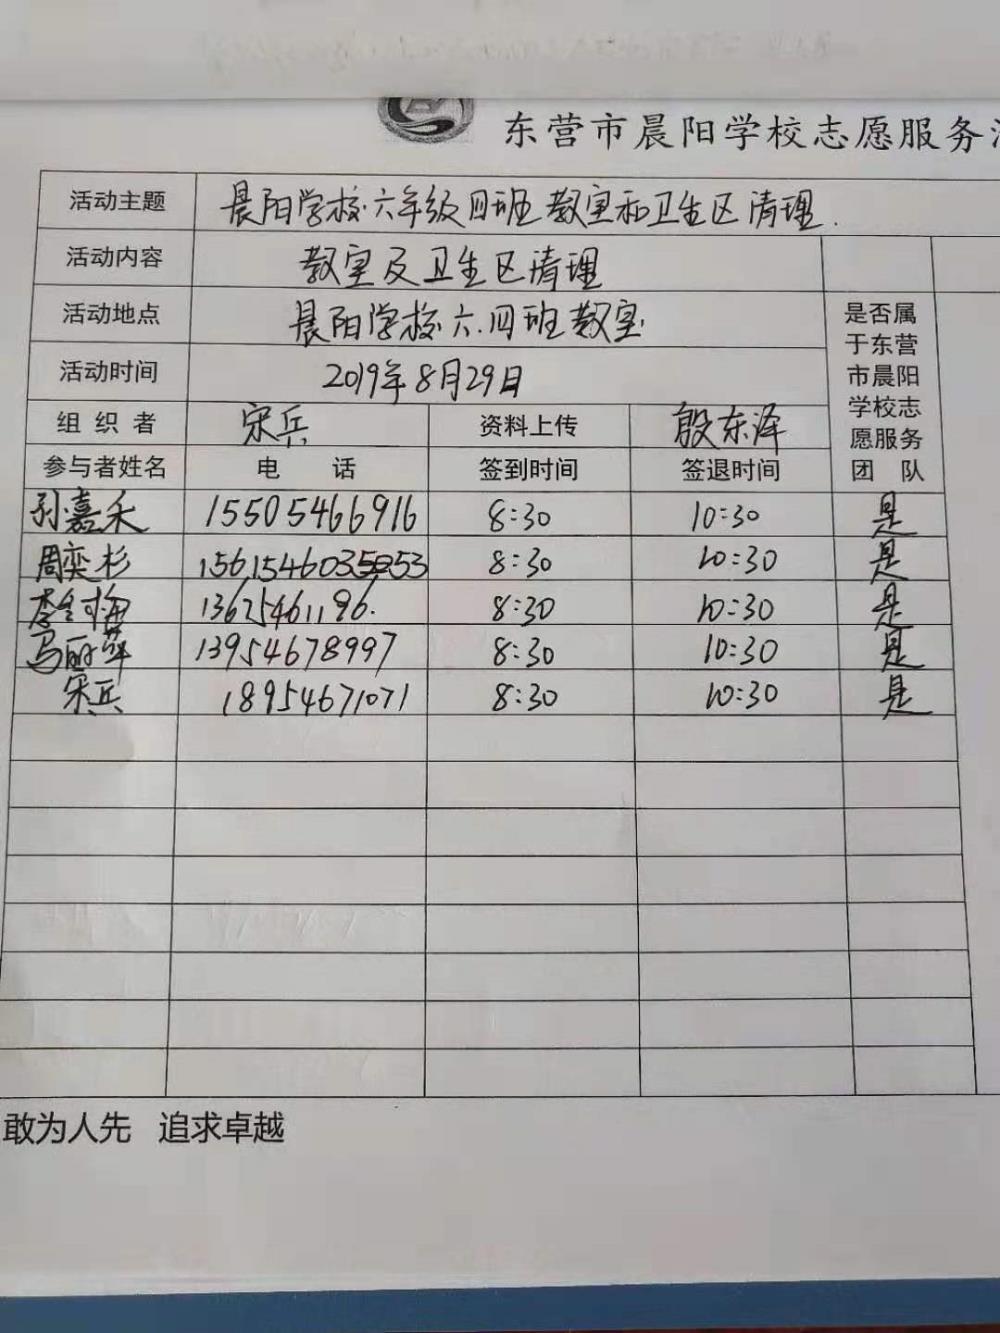 东营市晨阳学校志愿服务
活动主题 晨阳学校六年级四班教室和卫生区清理.
活动内容 教室及卫生区清理
活动地点 晨阳学校六.四班教室
活动时间 2019年8月29日
是否属于东营市晨阳学校志愿服务团 队
组 织 者 宋兵 资料上传 殷东泽
参与者姓名 电 话 签到时间 签退时间
孙嘉禾 15505466916 8:30 10:30 是
周奕杉 8:30 10:30 是
13625461196. 8:30 10:30 是
马丽萍 13954678997 8:30 10:30 是
宋兵 18954671071 8:30 10:30 是
敢为人先 追求卓越